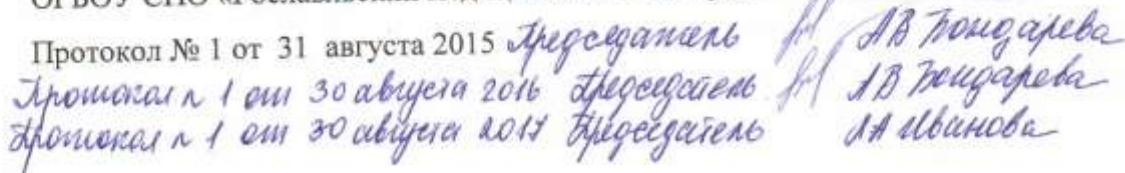 ОГБОУ СПО «Рославльский
Протокол № 1 от 31 августа 2015 Председатель АВ Бондарева
Протокол № 1 от 30 августа 2016 Председатель АВ Бондарева
Протокол № 1 от 30 августа 2017 Председатель ЛА Иванова